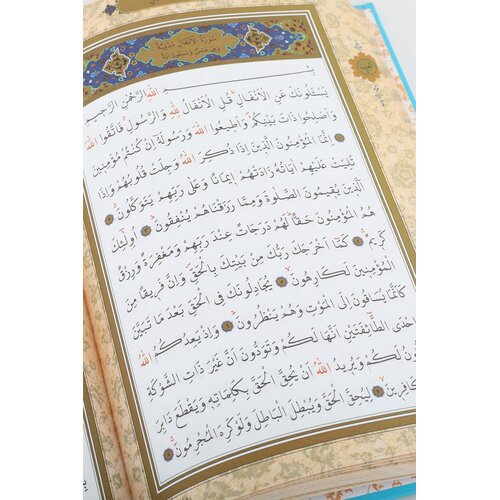 سُورَةُ الْاَنْفَالِ مَدَنِيَّةٌ
وَهِيَ خَمْسٌ وَسَبْعُونَ اٰيَةً
بِسْمِ اللّٰهِ الرَّحْمٰنِ الرَّحِيمِ
يَسْـَٔلُونَكَ عَنِ الْاَنْفَالِۜ قُلِ الْاَنْفَالُ لِلّٰهِ وَالرَّسُولِۚ فَاتَّقُوا اللّٰهَ
وَاَصْلِحُوا ذَاتَ بَيْنِكُمْۖ وَاَطِيعُوا اللّٰهَ وَرَسُولَهُٓ اِنْ كُنْتُمْ مُؤْمِنِينَ
﴿١﴾ اِنَّمَا الْمُؤْمِنُونَ الَّذِينَ اِذَا ذُكِرَ اللّٰهُ وَجِلَتْ قُلُوبُهُمْ وَاِذَا
تُلِيَتْ عَلَيْهِمْ اٰيَاتُهُ زَادَتْهُمْ اِيمَانًا وَعَلٰى رَبِّهِمْ يَتَوَكَّلُونَۚ ﴿٢﴾
اَلَّذِينَ يُقِيمُونَ الصَّلٰوةَ وَمِمَّا رَزَقْنَاهُمْ يُنْفِقُونَۜ ﴿٣﴾ اُو۬لٰٓئِكَ
هُمُ الْمُؤْمِنُونَ حَقًّاۜ لَهُمْ دَرَجَاتٌ عِنْدَ رَبِّهِمْ وَمَغْفِرَةٌ وَرِزْقٌ
كَرِيمٌۚ ﴿٤﴾ كَمَٓا اَخْرَجَكَ رَبُّكَ مِنْ بَيْتِكَ بِالْحَقِّۖ وَاِنَّ فَرِيقًا مِنَ
الْمُؤْمِنِينَ لَكَارِهُونَۙ ﴿٥﴾ يُجَادِلُونَكَ فِي الْحَقِّ بَعْدَ مَا تَبَيَّنَ
كَاَنَّمَا يُسَاقُونَ اِلَى الْمَوْتِ وَهُمْ يَنْظُرُونَۜ ﴿٦﴾ وَاِذْ يَعِدُكُمُ اللّٰهُ
اِحْدَى الطَّٓائِفَتَيْنِ اَنَّهَا لَكُمْ وَتَوَدُّونَ اَنَّ غَيْرَ ذَاتِ الشَّوْكَةِ
تَكُونُ لَكُمْ وَيُرِيدُ اللّٰهُ اَنْ يُحِقَّ الْحَقَّ بِكَلِمَاتِهِ وَيَقْطَعَ دَابِرَ
الْكَافِرِينَۙ ﴿٧﴾ لِيُحِقَّ الْحَقَّ وَيُبْطِلَ الْبَاطِلَ وَلَوْ كَرِهَ الْمُجْرِمُونَۚ ﴿٨﴾